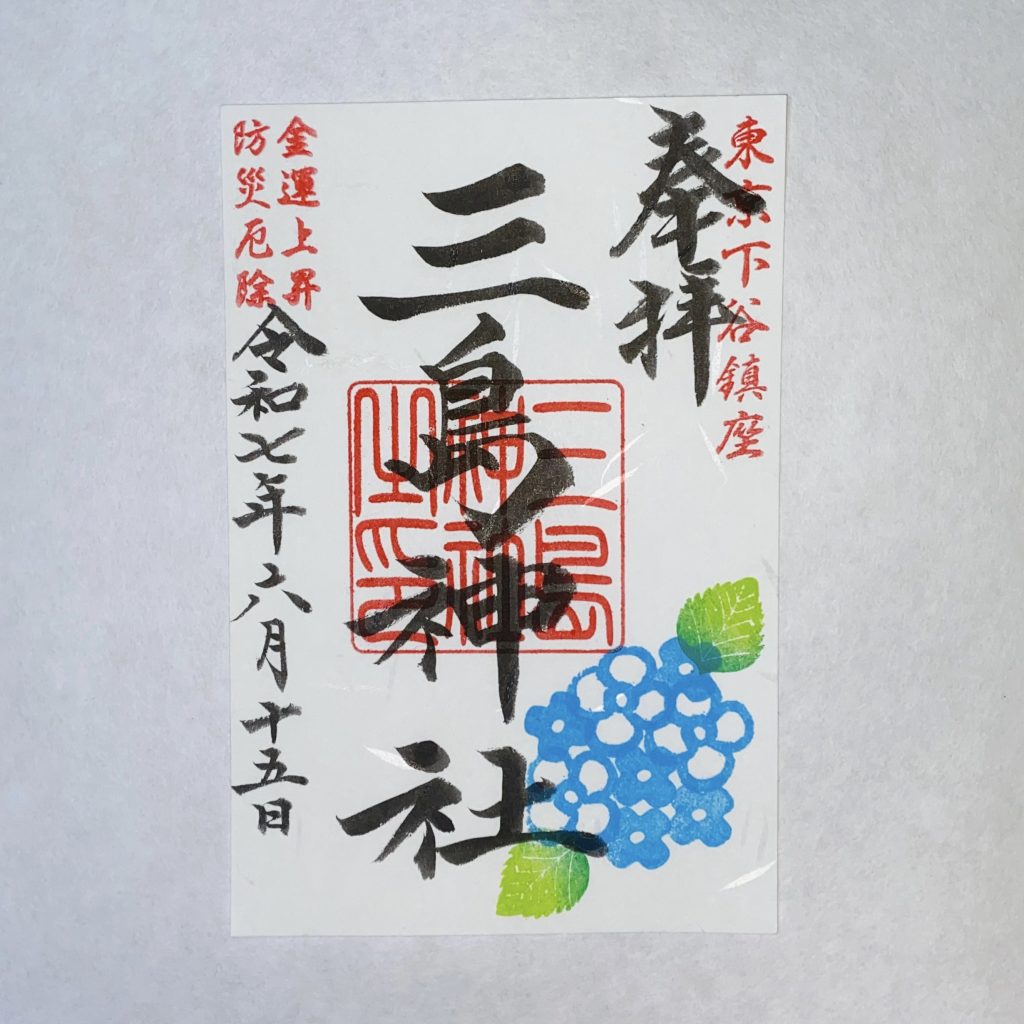 東京下谷鎮座
奉拝
三島神社
三島
神社
之印
金運上昇
防災厄除
令和七年六月十五日